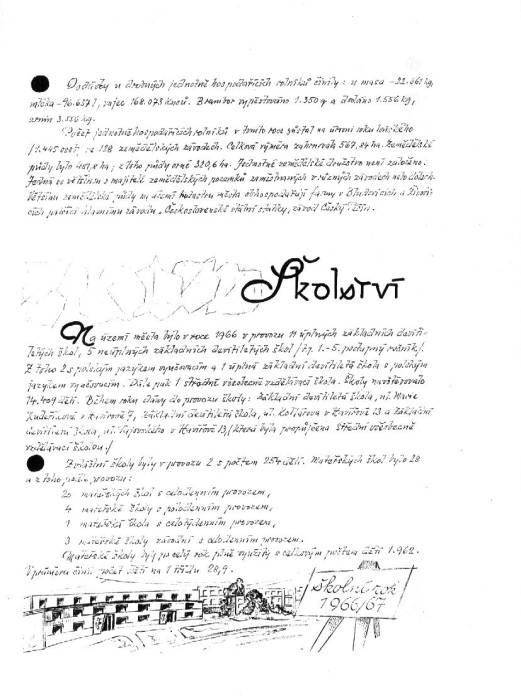 Dodávky u drobných jednotně hospodařících rolníků činily: u masa -32.061 kg,
mléka -96.657 l, vajec 168.073 kusů. Brambor vypěstováno 1.350 q a dodáno 1.556 kg,
zrnin 3.556 kg.
Počet jednotně hospodařících rolníků v tomto roce zůstal na úrovni roku loňského
/1.445 osob, ze 118 zemědělských závodech. Celková výměra zahrnovala 567,84 ha. Zemědělské
půdy bylo ha; z toho půdy orné 320,6 ha. Jednotné zemědělské družstvo není založeno.
Jedná se většinou o majitele zemědělských pozemků zaměstnaných v různých závodech nebo dolech.
Většinu zemědělské půdy na území katastru města obhospodařují farmy v Bludovicích a Životi-
cích patřící hlavnímu závodu „Československé státní statky, závod Český Těšín.
Školství
Na území města bylo v roce 1966 v provozu 11 úplných základních devíti-
letých škol, 5 neúplných základních devítiletých škol /tj. 1.-5. postupný ročník/.
Z toho 2 s polským jazykem vyučovacím a 1 úplná základní devítiletá škola s polským
jazykem vyučovacím. Dále pak 1 střední všeobecně vzdělávací škola. Školy navštěvovalo
14.409 dětí. Během roku dány do provozu školy: základní devítiletá škola, ul. Marie
Kudeříkové v Havířově 7, základní devítiletá škola, ul. Kollárova v Havířově 13 a základní
devítiletá škola, ul. Gajovského v Havířově 13 /která byla propůjčena střední všeobecně
vzdělávací školou/
Zvláštní školy byly v provozu 2 s počtem 254 dětí. Mateřských škol bylo 28
a z toho podle provozu:
20 mateřských škol s celodenním provozem,
4 mateřské školy s polodenním provozem,
1 mateřská škola s celotýdenním provozem,
3 mateřské školy závodní s celodenním provozem.
Mateřské školy byly po celý rok plně využity s celkovým počtem dětí 1.962.
V průměru činil počet dětí na 1 třídu 28,9.
Školní rok
1966/67